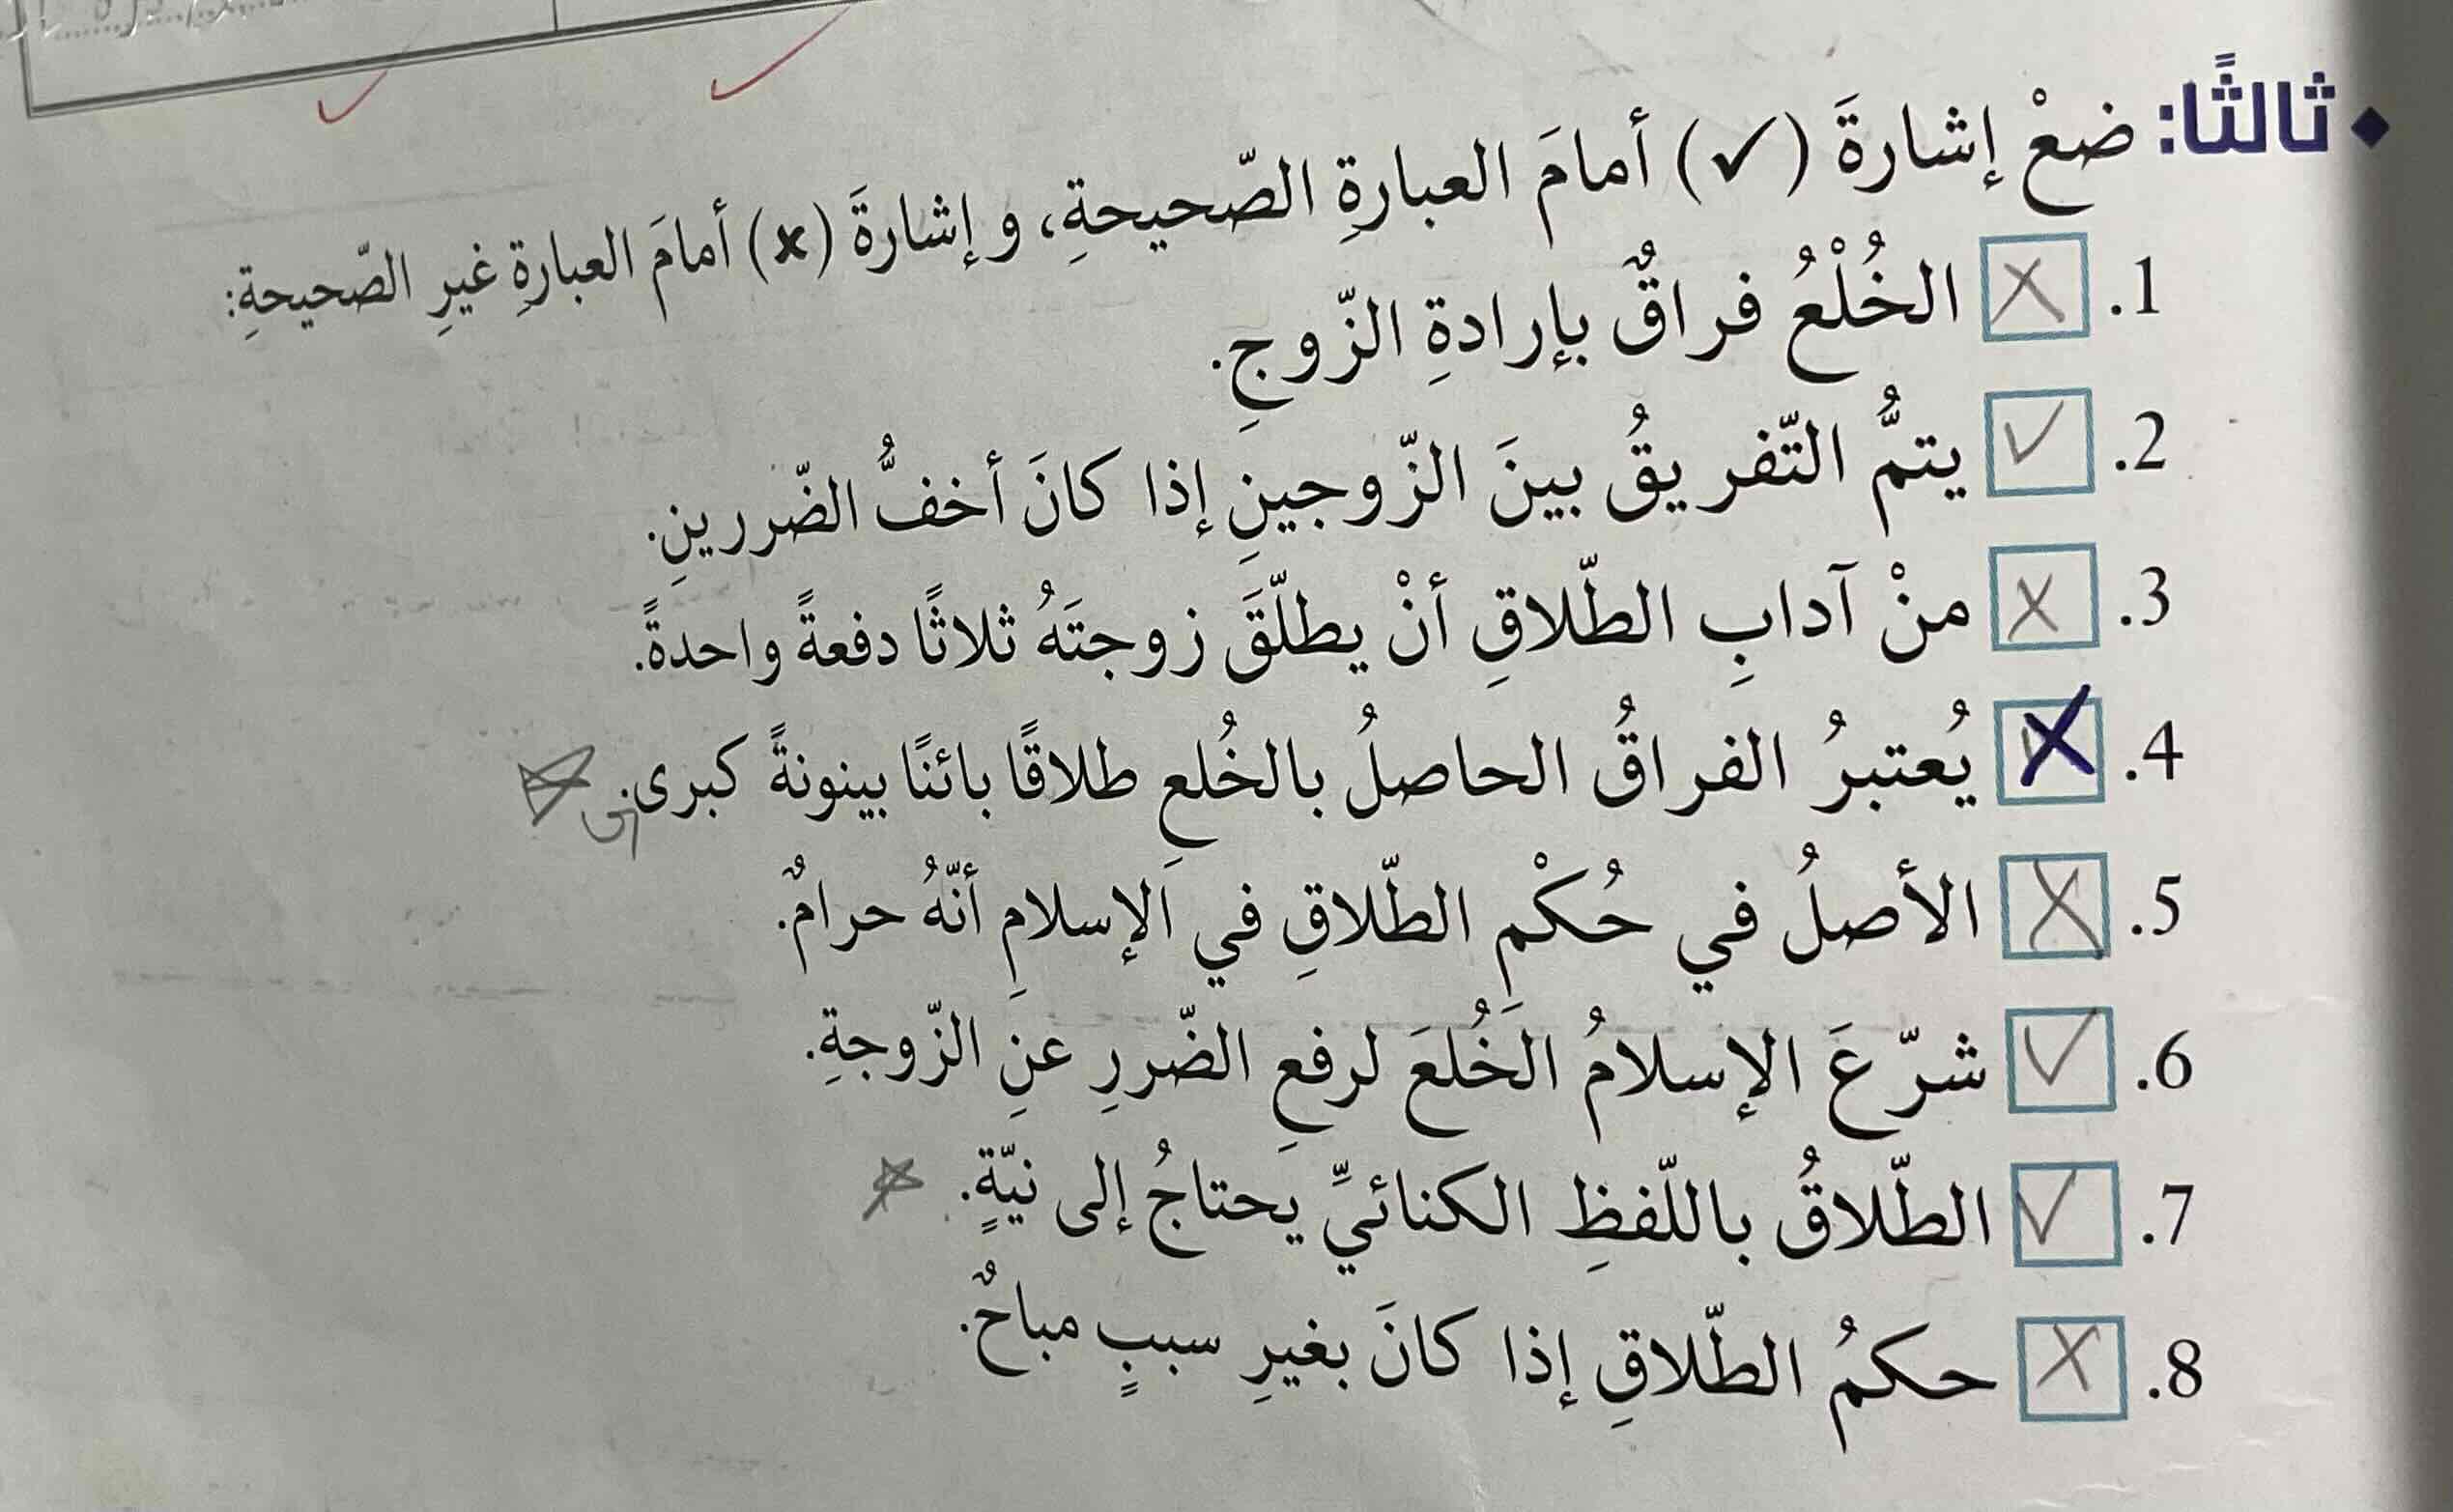 ثالثًا: ضعْ إشارةَ (✓) أمامَ العبارةِ الصّحيحةِ، وإشارةَ (×) أمامَ العبارةِ غيرِ الصّحيحةِ:
1. × الخُلْعُ فراقٌ بإرادةِ الزّوجِ.
2. ✓ يتمُّ التّفريقُ بينَ الزّوجينِ إذا كانَ أخفُّ الضّررينِ.
3. × منْ آدابِ الطّلاقِ أنْ يطلّقَ زوجتَهُ ثلاثًا دفعةً واحدةً.
4. × يُعتبرُ الفراقُ الحاصلُ بالخُلعِ طلاقًا بائنًا بينونةً كبرى.
5. × الأصلُ في حُكْمِ الطّلاقِ في الإسلامِ أنّهُ حرامٌ.
6. ✓ شرّعَ الإسلامُ الخُلعَ لرفعِ الضّررِ عنِ الزّوجةِ.
7. ✓ الطّلاقُ باللّفظِ الكنائيِّ يحتاجُ إلى نيّةٍ.
8. × حكمُ الطّلاقِ إذا كانَ بغيرِ سببٍ مباحٌ.